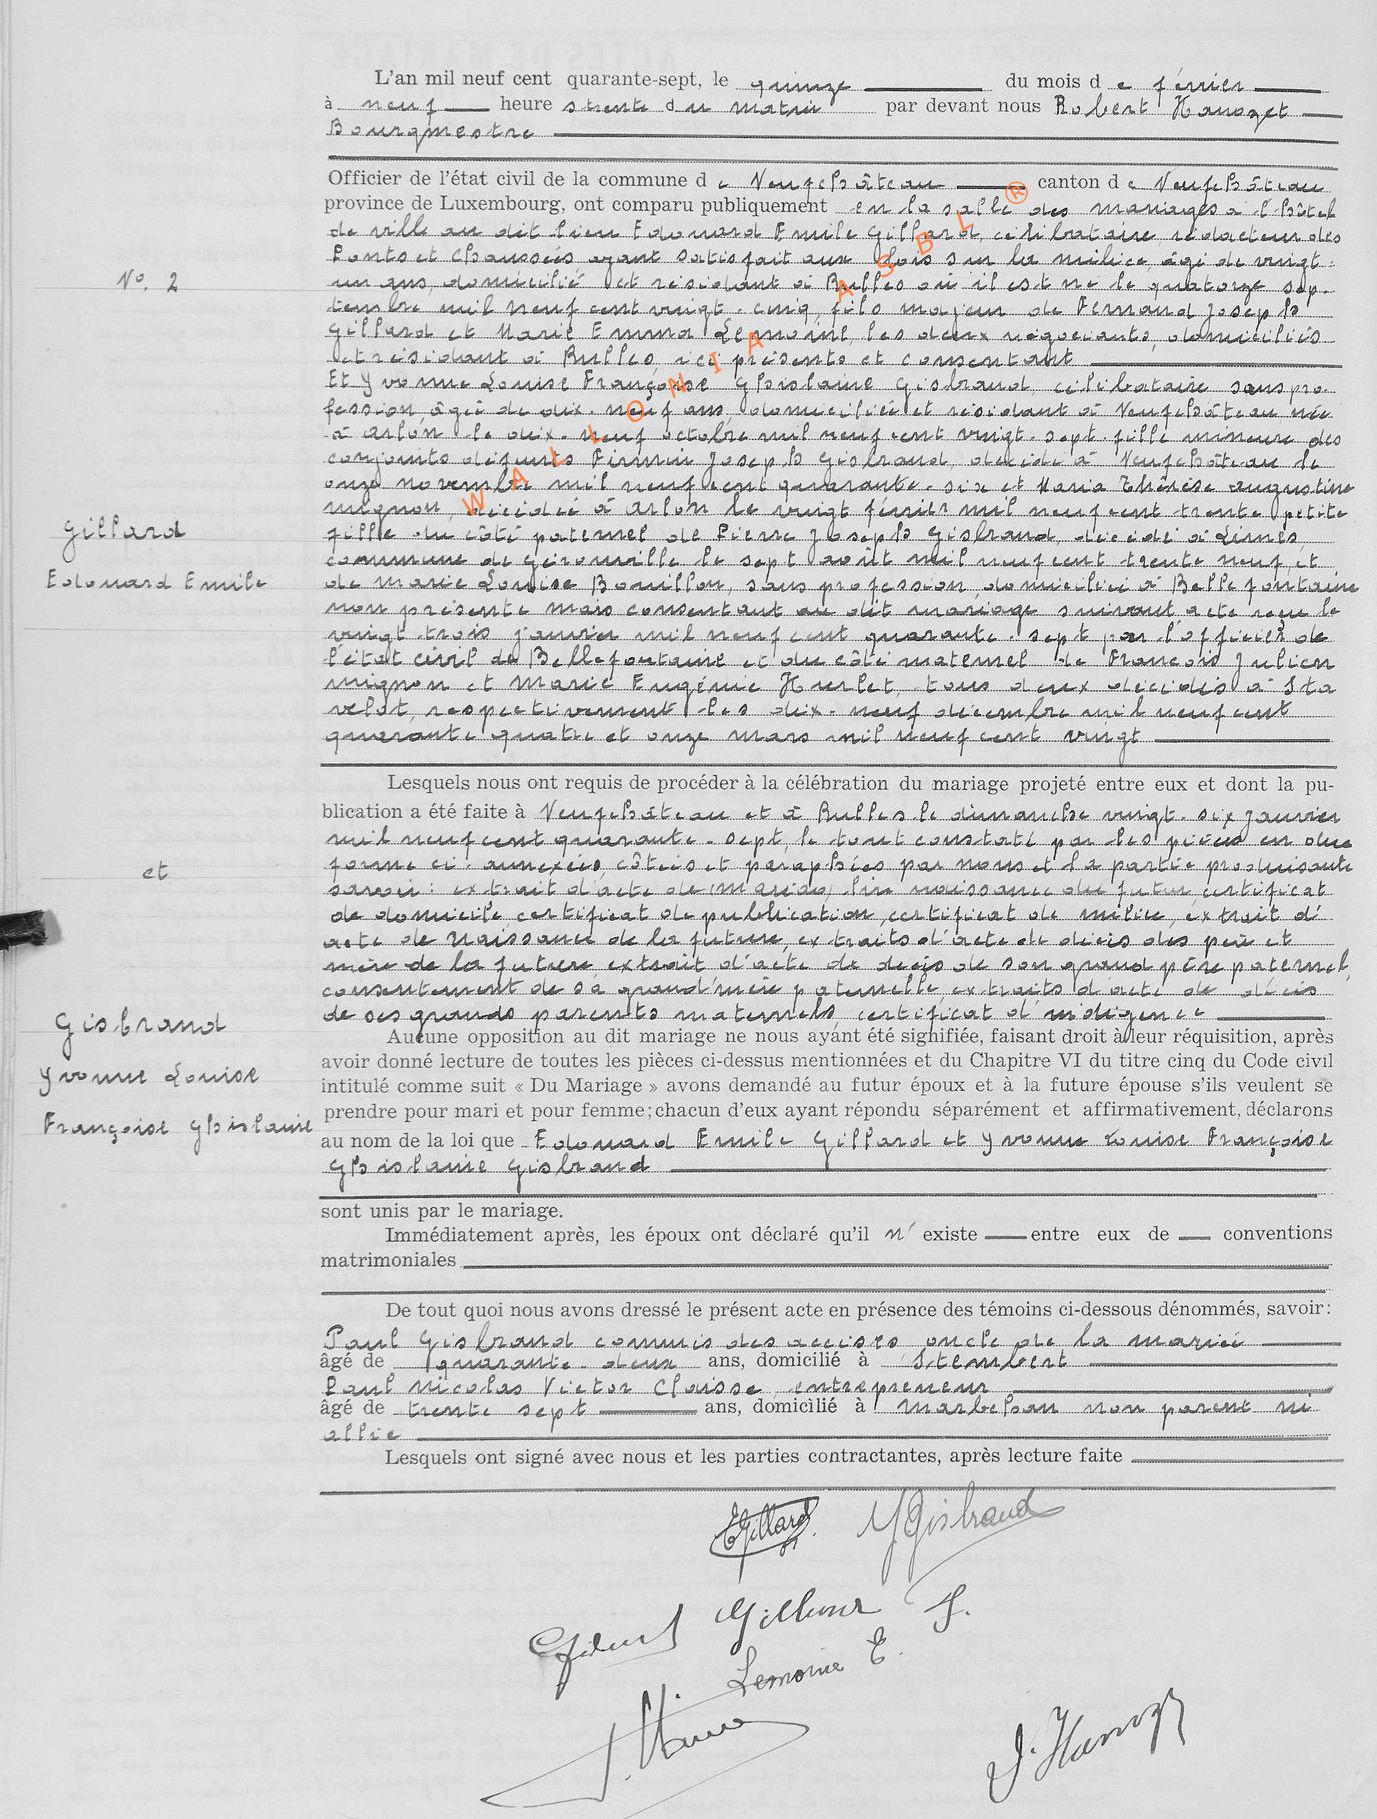 L'an mil neuf cent quarante-sept, le quinze du mois de février
à neuf heures trente du matin par devant nous Robert Hanozet
Bourgmestre
Officier de l'état civil de la commune de Neufchâteau canton de Neufchâteau
province de Luxembourg, ont comparu publiquement en la salle des mariages à l'hôtel
de ville au dit lieu Edouard Emile Gillard, célibataire rédacteur des
Ponts et Chaussées ayant satisfait aux lois sur la milice, âgé de vingt-
un ans, domicilié et résidant à Bulles où il est né le quatorze sep-
tembre mil neuf cent vingt-cinq, fils majeur de Fernand Joseph
Gillard et Marie Emma Lemoine, les deux négociants, domiciliés
et résidant à Bulles, ici présents et consentant
Et Yvonne Louise Françoise Ghislaine Gisbrand, célibataire sans pro-
fession âgée de dix-neuf ans, domiciliée et résidant à Neufchâteau née
à Arlon le dix-neuf octobre mil neuf cent vingt-sept fille mineure des
conjoints défunts Firmin Joseph Gisbrand, décédé à Neufchâteau le
onze novembre mil neuf cent quarante-six et Maria Thérèse Augustine
Mignon, décédée à Arlon le vingt février mil neuf cent trente petite
fille du côté paternel de Pierre Joseph Gisbrand, décédé à
commune de Gérouville le sept août mil neuf cent trente neuf et
de Marie Louise Bouillon, sans profession, domiciliée à Bellefontaine
non présente mais consentant au dit mariage suivant acte reçu le
vingt-trois janvier mil neuf cent quarante-sept par l'officier de
l'état civil de Bellefontaine et du côté maternel de François Julien
Mignon et Marie Eugénie Hurlet, tous deux décédés à Sta
velot, respectivement les dix-neuf décembre mil neuf cent
quarante quatre et onze mars mil neuf cent vingt
Lesquels nous ont requis de procéder à la célébration du mariage projeté entre eux et dont la pu-
blication a été faite à Neufchâteau et à Bulles le dimanche vingt-six janvier
mil neuf cent quarante-sept, le tout constaté par les pièces en due
forme ci-annexées, côtées et paraphées par nous et la partie produisante
savoir: extrait d'acte de naissance du futur, certificat
de domicile certificat de publication, certificat de milice, extrait d'
acte de naissance de la future, extraits d'acte de décès des père et
mère de la future, extrait d'acte de décès de son grand père paternel,
consentement de sa grand'mère paternelle, extraits d'acte de décès
de ses grands parents maternels, certificat d'indigence
Aucune opposition au dit mariage ne nous ayant été signifiée, faisant droit à leur réquisition, après
avoir donné lecture de toutes les pièces ci-dessus mentionnées et du Chapitre VI du titre cinq du Code civil
intitulé comme suit « Du Mariage » avons demandé au futur époux et à la future épouse s'ils veulent se
prendre pour mari et pour femme; chacun d'eux ayant répondu séparément et affirmativement, déclarons
au nom de la loi que Edouard Emile Gillard et Yvonne Louise Françoise
Ghislaine Gisbrand
sont unis par le mariage.
Immédiatement après, les époux ont déclaré qu'il n'existe entre eux de conventions
matrimoniales
De tout quoi nous avons dressé le présent acte en présence des témoins ci-dessous dénommés, savoir:
Paul Gisbrand commis des accises oncle de la mariée
âgé de quarante-deux ans, domicilié à Stembert
Paul Nicolas Victor Claisse, entrepreneur
âgé de trente sept ans, domicilié à Marbehan non parent ni
allié
Lesquels ont signé avec nous et les parties contractantes, après lecture faite
N°. 2
Gillard
Edouard Emile
et
Gisbrand
Yvonne Louise
Françoise Ghislaine
EGillard
YGisbrand
Lemoine E.
WALLONIA ASBL ®